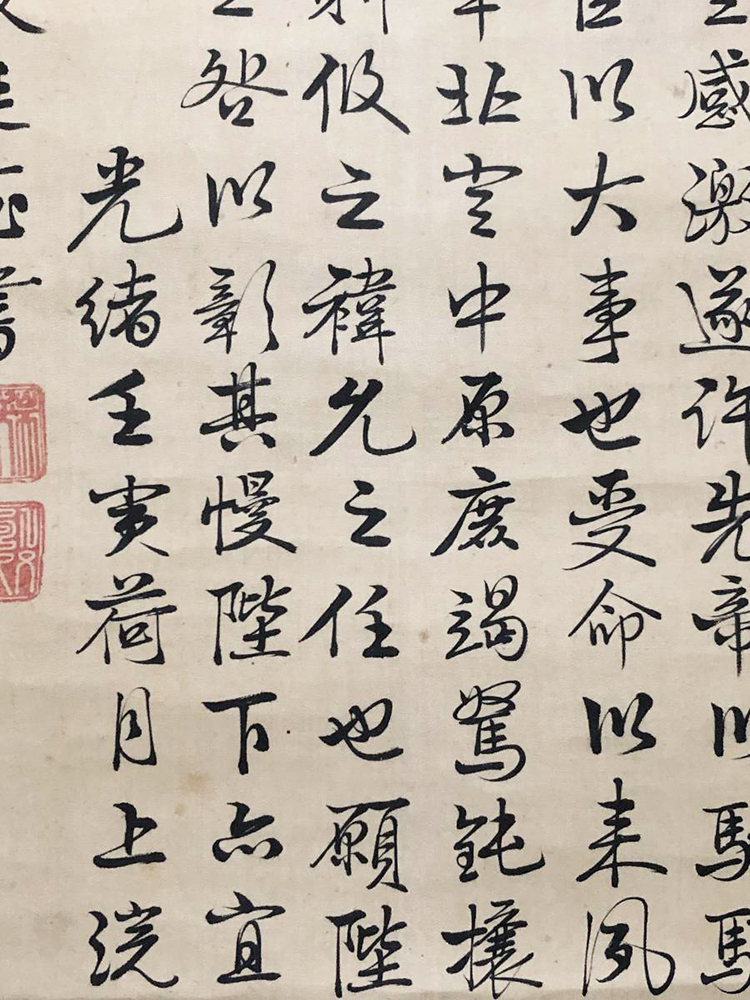 感激遂許先帝以驅馳
臣以大事也受命以来夙
北定中原庶竭駑鈍攘
攸之禕允之任也願陛
咎以彰其慢陛下亦宜
光緒壬寅荷月上浣
書